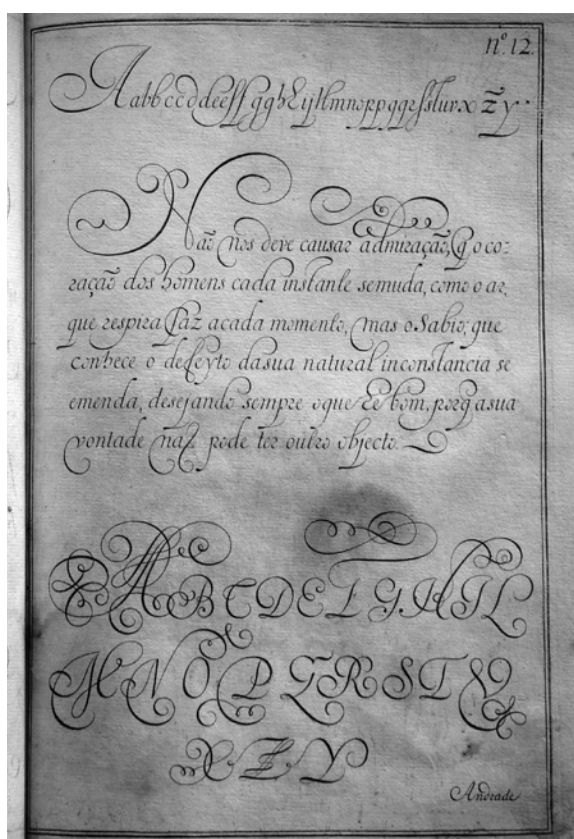 nº. 12.
A a b b c c d d e e f f g g h h i j l l m n o p p q q r s s t u v x z y
Não nos deve causar admiração, q̃ o co-
ração dos homens cada instante semuda, como o ar,
que respira faz acada momento, mas o Sabio, que
conhece o defeyto dasua natural inconstancia se
emenda, desejando sempre oque he bom, porq̃ asua
vontade naõ pode ter outro objecto.
A B C D E F G H I L
M N O P Q R S T V
X Z Y
Andrade